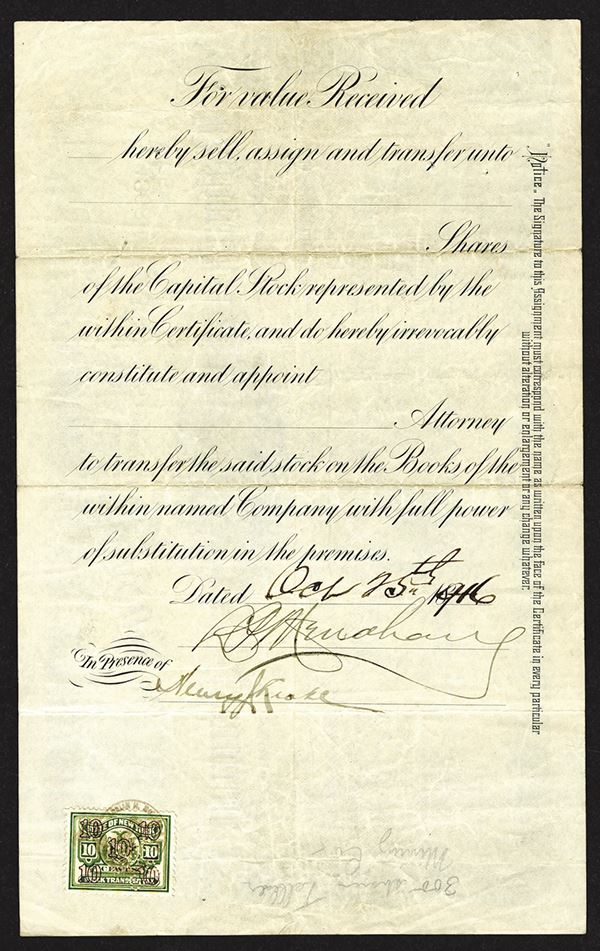 For value Received
hereby sell, assign and transfer unto
Shares
of the Capital Stock represented by the
within Certificate, and do hereby irrevocably
constitute and appoint
Attorney
to transfer the said stock on the Books of the
within named Company with full power
of substitution in the premises.
Dated Oct 25th 1916
In Presence of
Henry
"Notice." The Signature to this Assignment must correspond with the name as written upon the face of the Certificate in every particular
without alteration or enlargement or any change whatever.
10 10
OF NEW
10 10 10
CENTS
10 10
300 shares
Mining Co